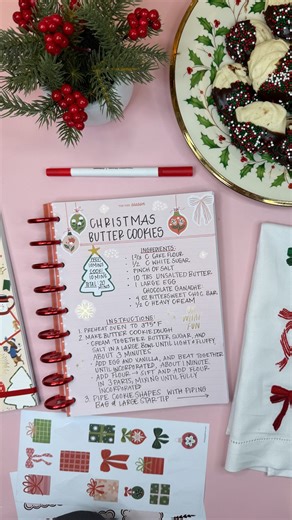 CHRISTMAS
BUTTER COOKIES
INGREDIENTS:
C CAKE FLOUR
C WHITE SUGAR
PINCH OF SALT
10 TBS UNSALTED BUTTER
1 LARGE EGG
CHOCOLATE GANACHE
4 OZ BITTERSWEET CHOC BAR
½ C HEAVY CREAM
INSTRUCTIONS:
1. PREHEAT OVEN TO 375°F
2. MAKE BUTTER COOKIE DOUGH
- CREAM TOGETHER BUTTER, SUGAR, AND
SALT IN A LARGE BOWL UNTIL LIGHT & FLUFFY,
ABOUT 3 MINUTES
- ADD EGG AND VANILLA, AND BEAT TOGETHER
UNTIL INCORPORATED, ABOUT 1 MINUTE
- ADD FLOUR → SIFT AND ADD FLOUR
IN 3 PARTS, MIXING UNTIL FULLY
INCORPORATED
3. PIPE COOKIE SHAPES WITH PIPING
BAG & LARGE STAR TIP